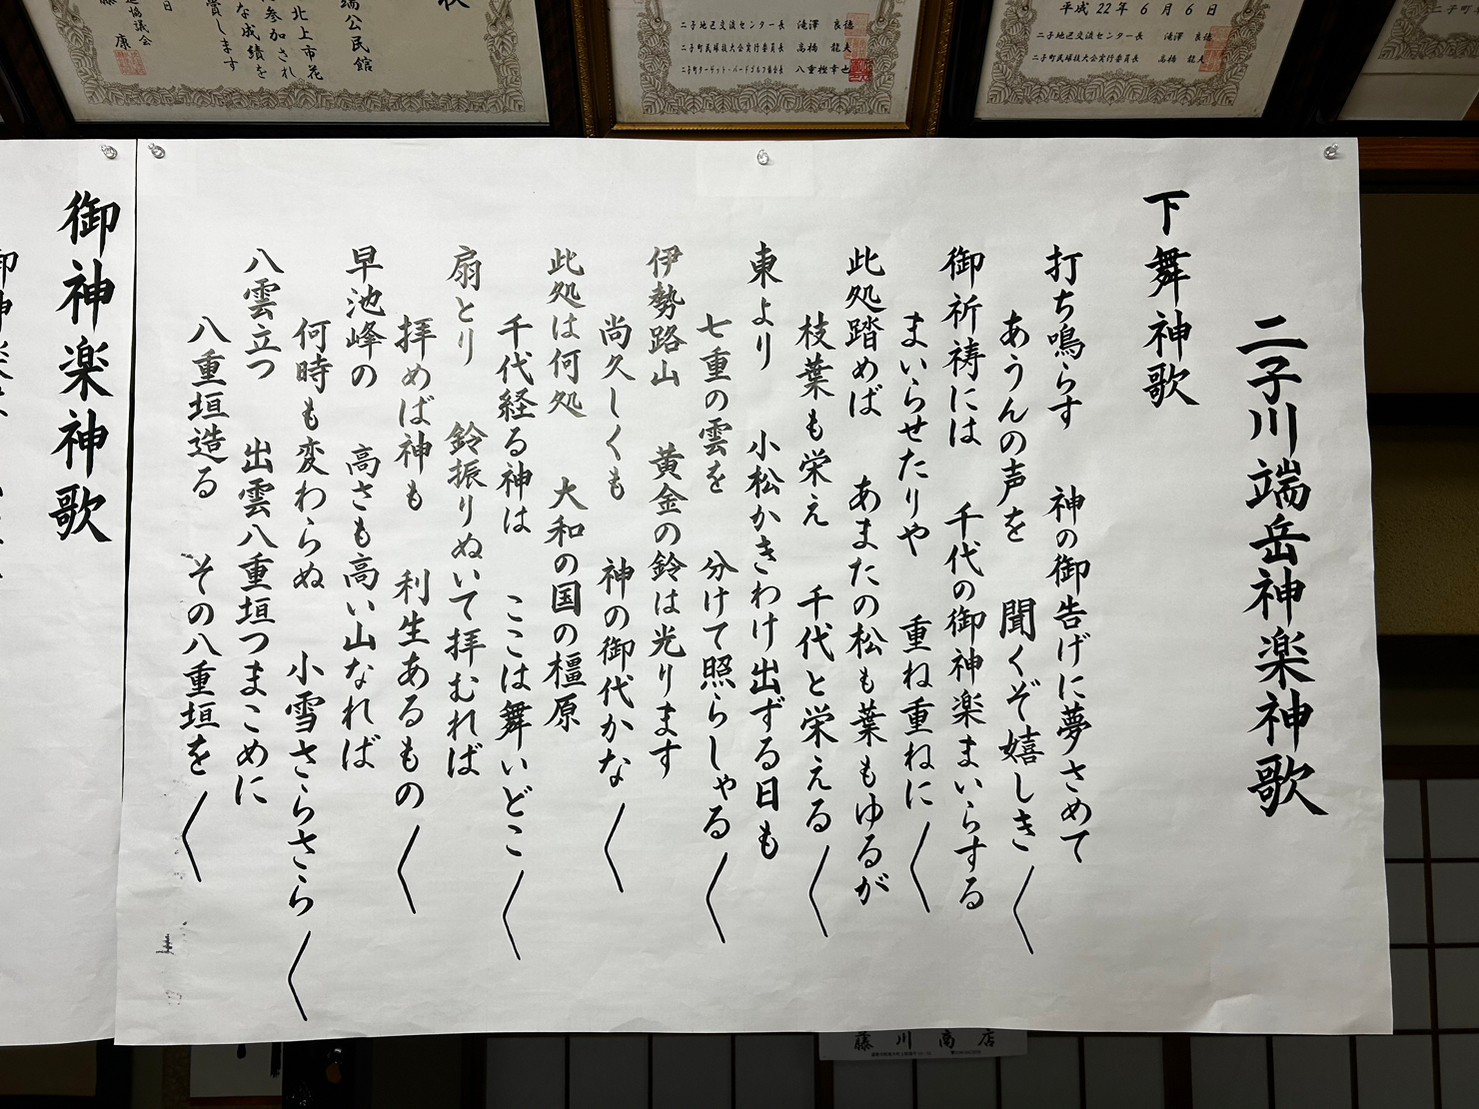 二子川端岳神楽神歌
下舞神歌
打ち鳴らす　神の御告げに夢さめて
あうんの声を　聞くぞ嬉しき〱
御祈祷には　千代の御神楽まいらする
まいらせたりや　重ね重ねに〱
此処踏めば　あまたの松も葉もゆるが
枝葉も栄え　千代と栄える〱
東より　小松かきわけ出ずる日も
七重の雲を　分けて照らしゃる〱
伊勢路山　黄金の鈴は光ります
尚久しくも　神の御代かな〱
此処は何処　大和の国の橿原
千代経る神は　ここは舞いどこ〱
扇とり　鈴振りぬいて拝むれば
拝めば神も　利生あるもの〱
早池峰の　高さも高い山なれば
何時も変わらぬ　小雪さらさら〱
八雲立つ　出雲八重垣つまこめに
八重垣造る　その八重垣を〱
御神楽神歌
端公民館
北上市花
参加され
な成績を
賞します
協議会
康
二子地区交流センター長　滝澤　良徳
二子町民球技大会実行委員長　高橋　龍夫
二子町ターゲット・バードゴルフ協会長　八重樫幸也
平成22年6月6日
二子地区交流センター長　滝澤　良徳
二子町民球技大会実行委員長　高橋　龍夫
藤川商店